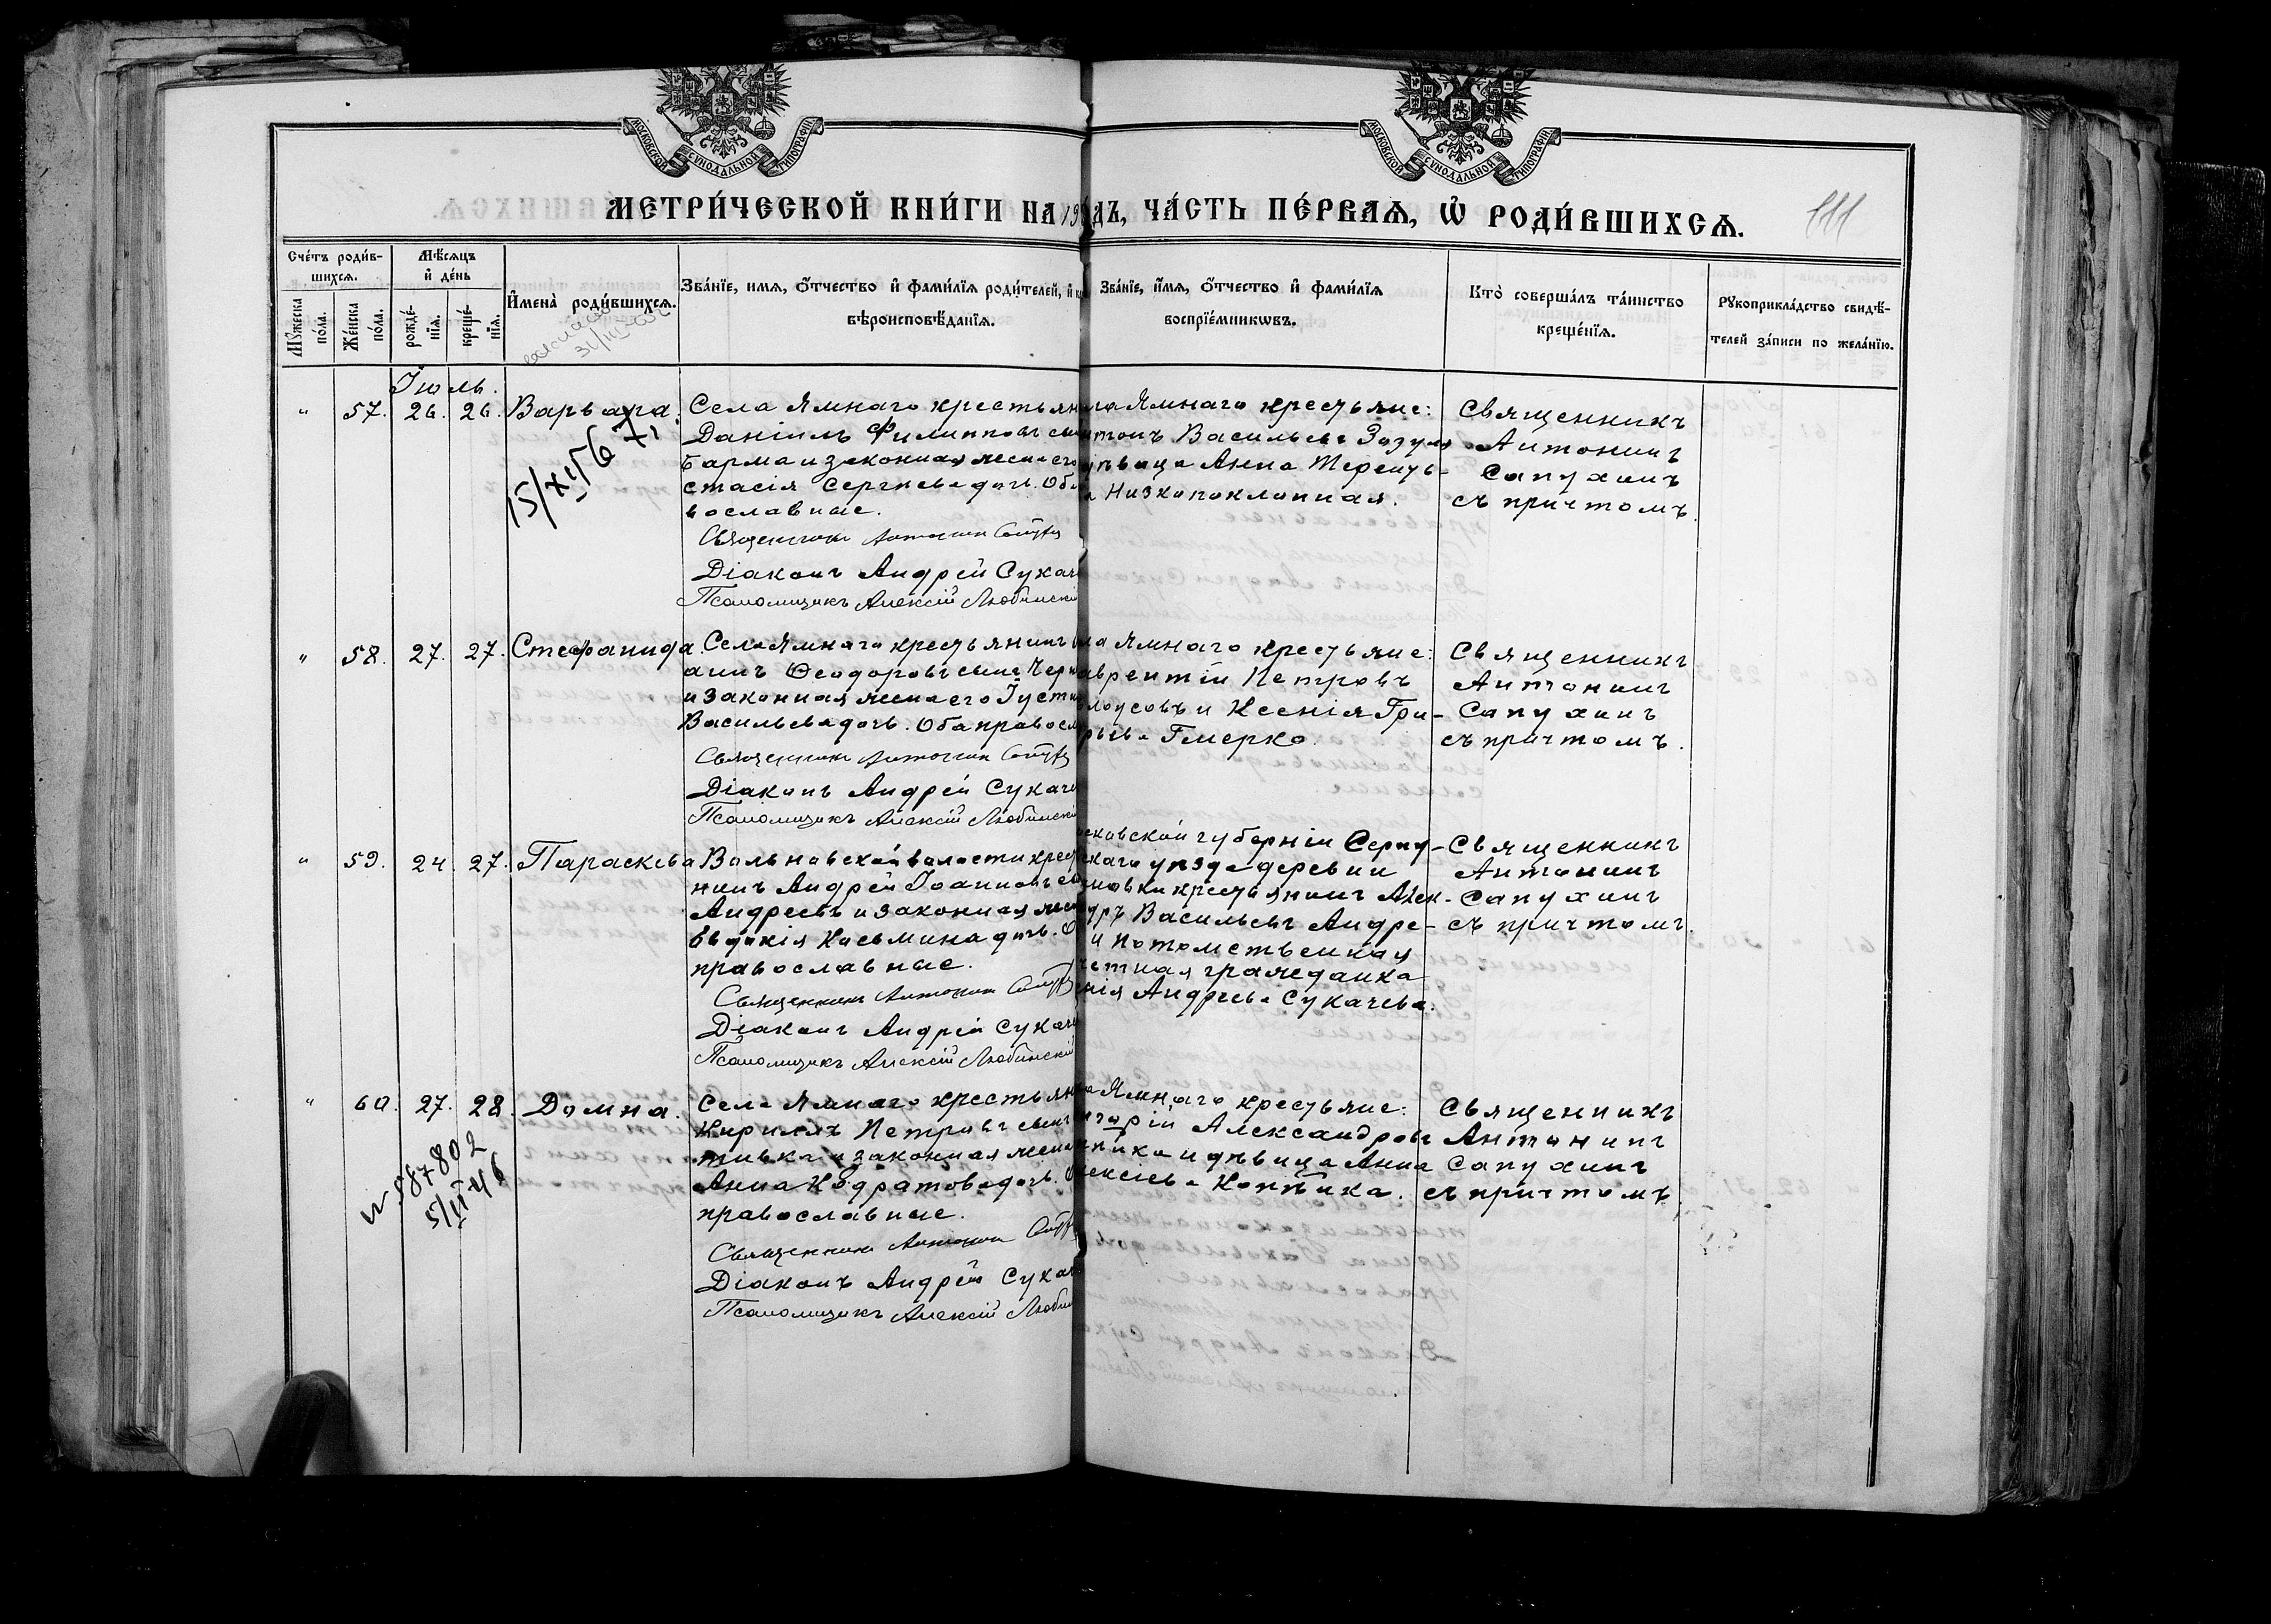 МОСКОВСКОЙ СѴНОДАЛЬНОЙ ТИПОГРАФІИ
МОСКОВСКОЙ СѴНОДАЛЬНОЙ ТИПОГРАФІИ
МЕТРИ́ЧЕСКОЙ КНИ́ГИ НА 19
ДЪ, ЧА́СТЬ ПЕ́РВАѦ, Ѡ РОДИ́ВШИХСѦ.
111
Сче́тъ роди́в-
шихсѧ.
Мꙋжеска
по́ла.
Же́нска
по́ла.
Мѣ́сѧцъ
и де́нь
рожде́-
нїѧ.
креще́-
нїѧ.
Имена̀ роди́вшихсѧ.
31/III
Зва́нїе, имѧ, о́тчество и фами́лїѧ роди́телей, и
вѣроисповѣ́данїѧ.
Зва́нїе, и́мѧ, о́тчество и фами́лїѧ
воспрїе́мникѡвъ.
Кто̀ соверша́лъ та́инство
креще́нїѧ.
Рꙋкоприкла́дство свидѣ́-
телей за́писи по жела́нїю.
Іюль.
" 57. 26. 26. Варвара.
15/XI 56 г.
Села Ямнаго крестьян
Даніилъ Филипповъ сын
Барма и законная жена его
стасія Сергіева дочь. Оба
вославные.
Священникъ Антонин
Діаконъ Андрей Сукач
Псаломщикъ Алексій Любинскій
ла Ямнаго крестьяне:
тонъ Васильевъ Зозуля
дѣвица Анна Теренть-
а Низкопоклонная.
Священникъ
Антонинъ
Сапухинъ
съ причтомъ.
" 58. 27. 27. Стефанида.
Села Ямнаго крестьянинъ
аннъ Ѳеодоровъ сынъ Чер
и законная жена его Іусти
Васильева дочь. Оба правосл
Священникъ Антонин
Діаконъ Андрей Сукаче
Псаломщикъ Алексій Любинскій
ла Ямнаго крестьяне:
аврентій Петровъ
лоусовъ и Ксенія Гри-
рьева Гмерко.
Священникъ
Антонинъ
Сапухинъ
съ причтомъ.
" 59. 24. 27. Параскева
Вольновской волости крест
нинъ Андрей Іоанновъ сы
Андреевъ и законная жен
Евдокія Косьмина дочь. О
православные.
Священникъ Антонин
Діаконъ Андрей Сукаче
Псаломщикъ Алексій Любинскій
сковской губерніи Серпу-
скаго уѣзда деревни
мовки крестьянинъ Алек-
дръ Васильевъ Андре-
и потомственная
четная гражданка
нія Андреева Сукачева.
Священникъ
Антонинъ
Сапухинъ
съ причтомъ.
" 60. 27. 28. Домна.
N 087802
5/VI 46
Села Ямнаго крестьян
Кириллъ Петровъ сынъ
тивка и законная жена
Анна Кодратова дочь. О
православные.
Священникъ Антонин
Діаконъ Андрей Сукач
Псаломщикъ Алексій Любин
а Ямнаго крестьяне:
игорій Александровъ
пѣйка и дѣвица Анна
ексіева Копѣйка.
Священникъ
Антонинъ
Сапухинъ
съ причтомъ.